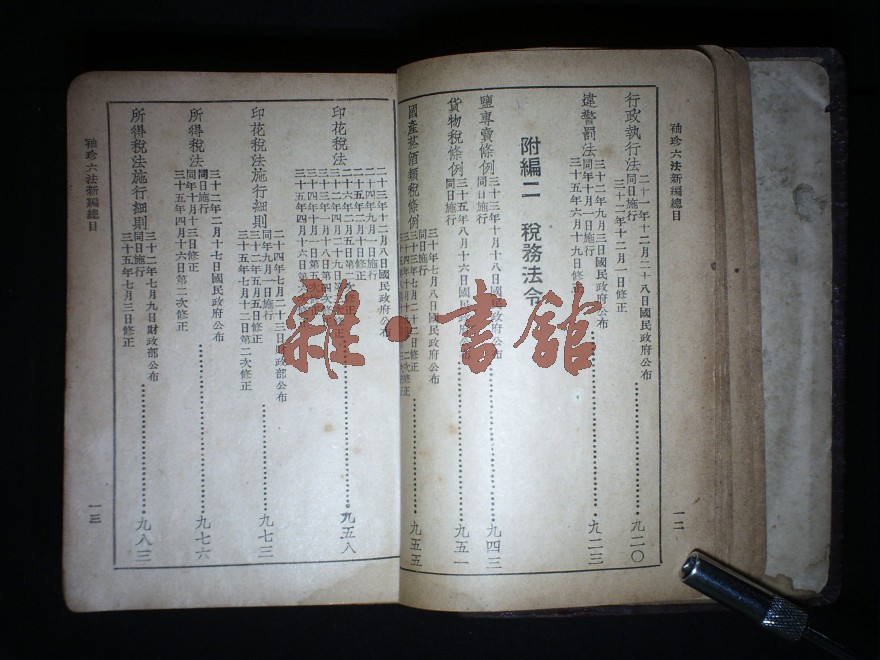 袖珍六法新編總目
一二
行政執行法
二十一年十二月二十八日國民政府公布
同日施行
三十二年十二月一日修正
九二〇
違警罰法
三十二年九月三日國民政府公布
同年十月一日施行
三十五年六月十九日修正
九二三
附編二 稅務法令
鹽專賣條例
三十三年十月十八日國民政府公布
同日施行
九四三
貨物稅條例
三十五年八月十六日國民政府公布
同日施行
九五一
國產菸酒類稅條例
三十年七月八日國民政府公布
同日施行
九五五
印花稅法
二十三年十二月八日國民政府公布
二十四年九月一日施行
二十五年二月十日修正
九五八
印花稅法施行細則
二十四年七月二十三日財政部公布
同年九月一日施行
三十二年五月五日修正
三十五年七月十二日第二次修正
九七三
所得稅法
三十二年二月十七日國民政府公布
同日施行
同年十月十三日修正
三十五年四月十六日第二次修正
九七六
所得稅法施行細則
三十二年七月九日財政部公布
同日施行
三十五年七月三日修正
九八三
袖珍六法新編總目
一三
雜·書館